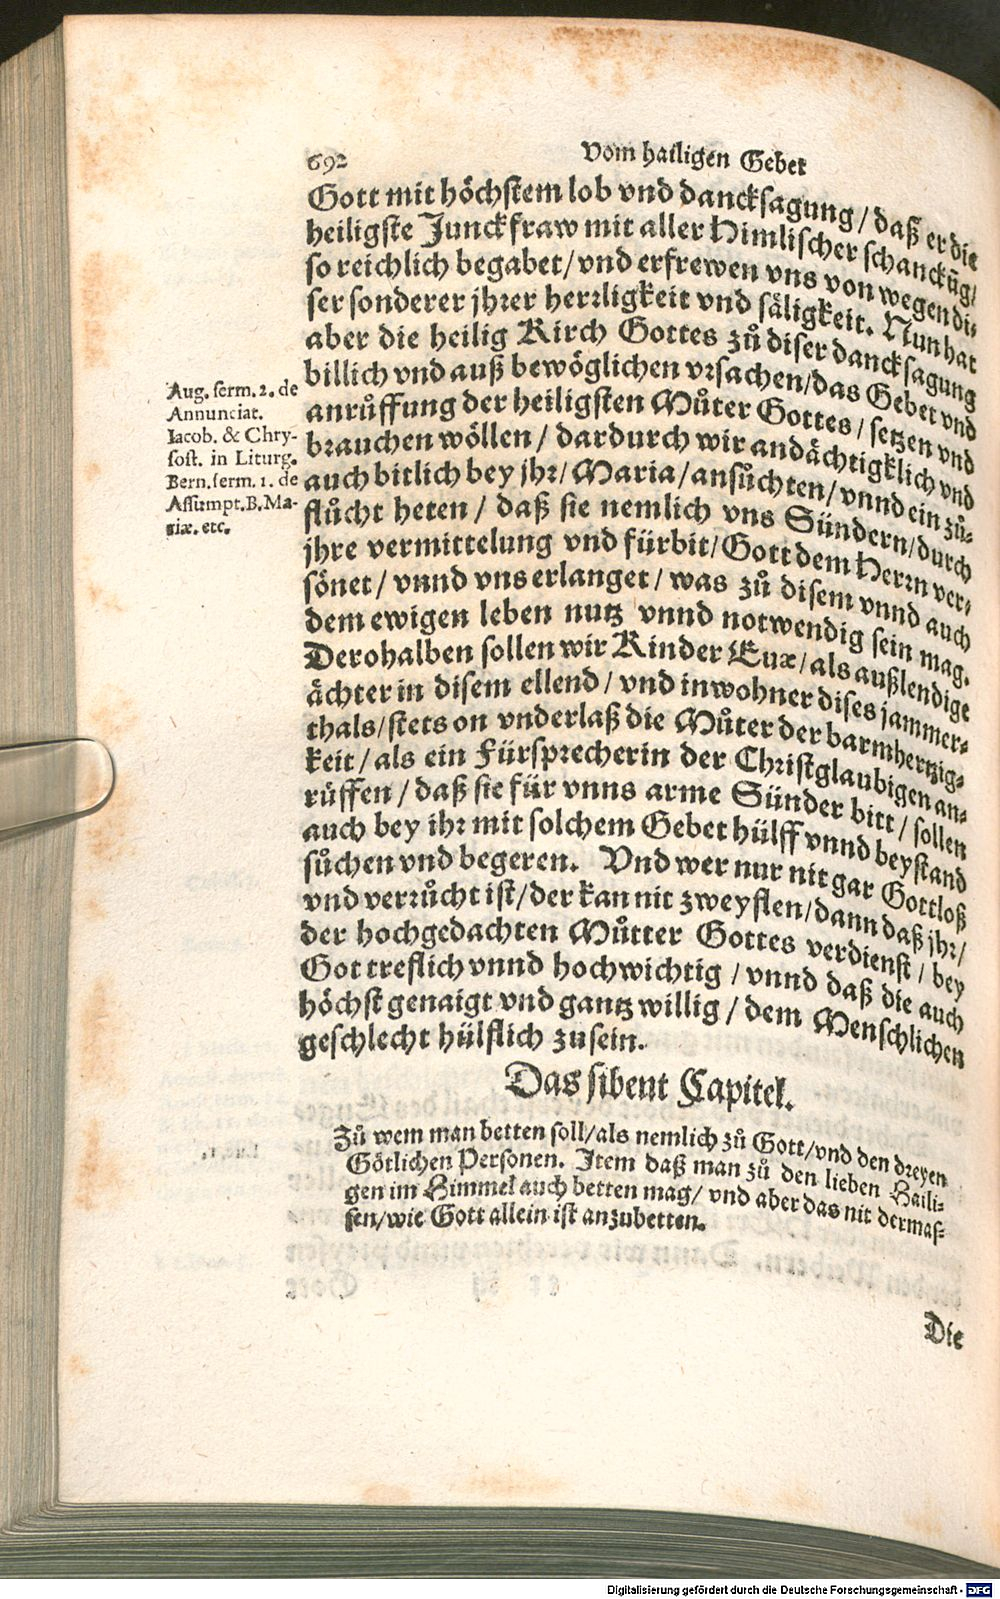 692 Vom hailigen Gebet
Gott mit höchstem lob vnd dancksagung/ daß er die
heiligste Junckfraw mit aller Himlischer schanckūg/
so reichlich begabet/ vnd erfrewen vns von wegen di-
ser sonderer jhrer herrligkeit vnd säligkeit. Nun hat
aber die heilig Kirch Gottes zů diser dancksagung
billich vnd auß bewöglichen vrsachen/ das Gebet vnd
anrůffung der heiligsten Můter Gottes/ setzen vnd
brauchen wöllen/ dardurch wir andächtigklich vnd
auch bitlich bey jhr/ Maria/ ansůchten/ vnnd ein zů-
flůcht heten/ daß sie nemlich vns Sündern/ durch
jhre vermittelung vnd fürbit/ Gott dem Herrn ver-
sönet/ vnnd vns erlanget/ was zů disem vnnd auch
dem ewigen leben nutz vnnd notwendig sein mag.
Derohalben sollen wir Kinder Euæ/ als außlendige
ächter in disem ellend/ vnd inwohner dises jammer-
thals/ stets on vnderlaß die Můter der barmhertzig-
keit/ als ein Fürsprecherin der Christglaubigen an-
růffen/ daß sie für vnns arme Sünder bitt/ sollen
auch bey ihr mit solchem Gebet hülff vnnd beystand
sůchen vnd begeren. Vnd wer nur nit gar Gottloß
vnd verrůcht ist/ der kan nit zweyflen/ dann daß jhr/
der hochgedachten Můtter Gottes verdienst/ bey
Got treflich vnnd hochwichtig/ vnnd daß die auch
höchst genaigt vnd gantz willig/ dem Menschlichen
geschlecht hülflich zusein.
Aug. serm. 2. de
Annunciat.
Iacob. & Chry-
sost. in Liturg.
Bern. serm. 1. de
Assumpt. B. Ma-
riæ. etc.
Das sibent Capitel.
Zů wem man betten soll/ als nemlich zů Gott/ vnd den dreyen
Götlichen Personen. Item daß man zů den lieben Haili-
gen im Himmel auch betten mag/ vnd aber das nit dermaß-
sen/ wie Gott allein ist anzubetten.
Die
Digitalisierung gefördert durch die Deutsche Forschungsgemeinschaft - DFG